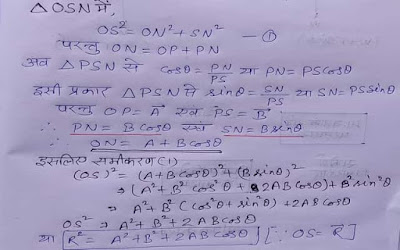 △OSN में,
OS² = ON² + SN² —①
परन्तु ON = OP + PN
अब △PSN से cosθ = PN/PS या PN = PScosθ
इसी प्रकार △PSN में sinθ = SN/PS या SN = PSsinθ
परन्तु OP = A⃗ एवं PS = B⃗
∴ PN = Bcosθ एवं SN = Bsinθ
∴ ON = A + Bcosθ
इसलिए समीकरण (1)
(OS)² = (A + Bcosθ)² + (Bsinθ)²
⇒ (A² + B²cos²θ + 2ABcosθ) + B²sin²θ
⇒ A² + B²(cos²θ + sin²θ) + 2ABcosθ
OS² = A² + B² + 2ABcosθ
या R² = A² + B² + 2ABcosθ [∵ OS = R⃗]